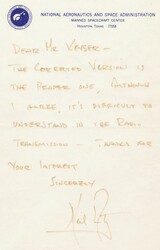 NATIONAL AERONAUTICS AND SPACE ADMINISTRATION
MANNED SPACECRAFT CENTER
HOUSTON, TEXAS 77058
DEAR MR
THE CORRECTED VERSION IS
THE PROPER ONE, ALTHOUGH
I AGREE, IT'S DIFFICULT TO
UNDERSTAND IN THE
TRANSMISSION - THANKS FOR
YOUR INTEREST
SINCERELY